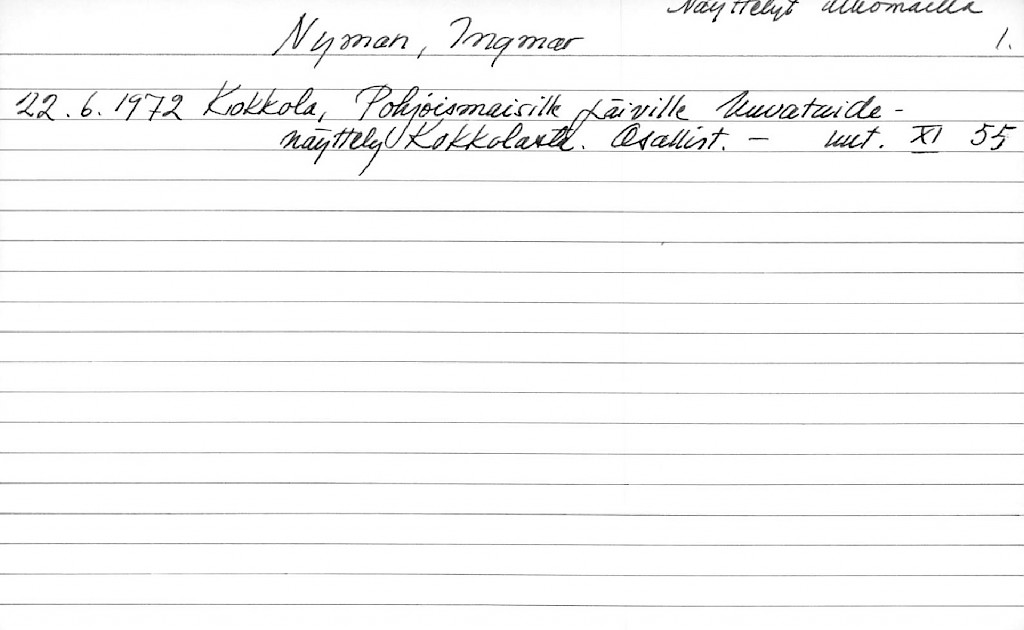 Näyttelyt ulkomailla
Nyman, Ingmar 1.
22.6.1972 Kokkola, Pohjoismaisille päiville kuvataide-
näyttely Kokkolasta. Osallist. - uut. XI 55